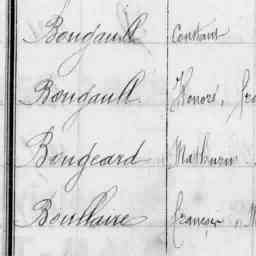 Bougault Constant
Bougault Honoré,
Bougeard Mathurin
Boullaire François,